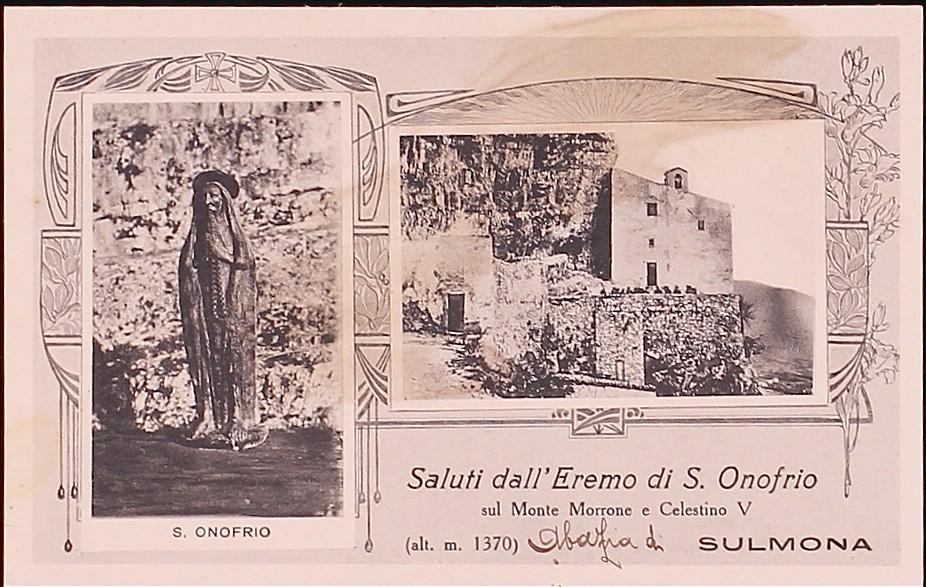 S. ONOFRIO
Saluti dall'Eremo di S. Onofrio
sul Monte Morrone e Celestino V
(alt. m. 1370) Abazia di SULMONA